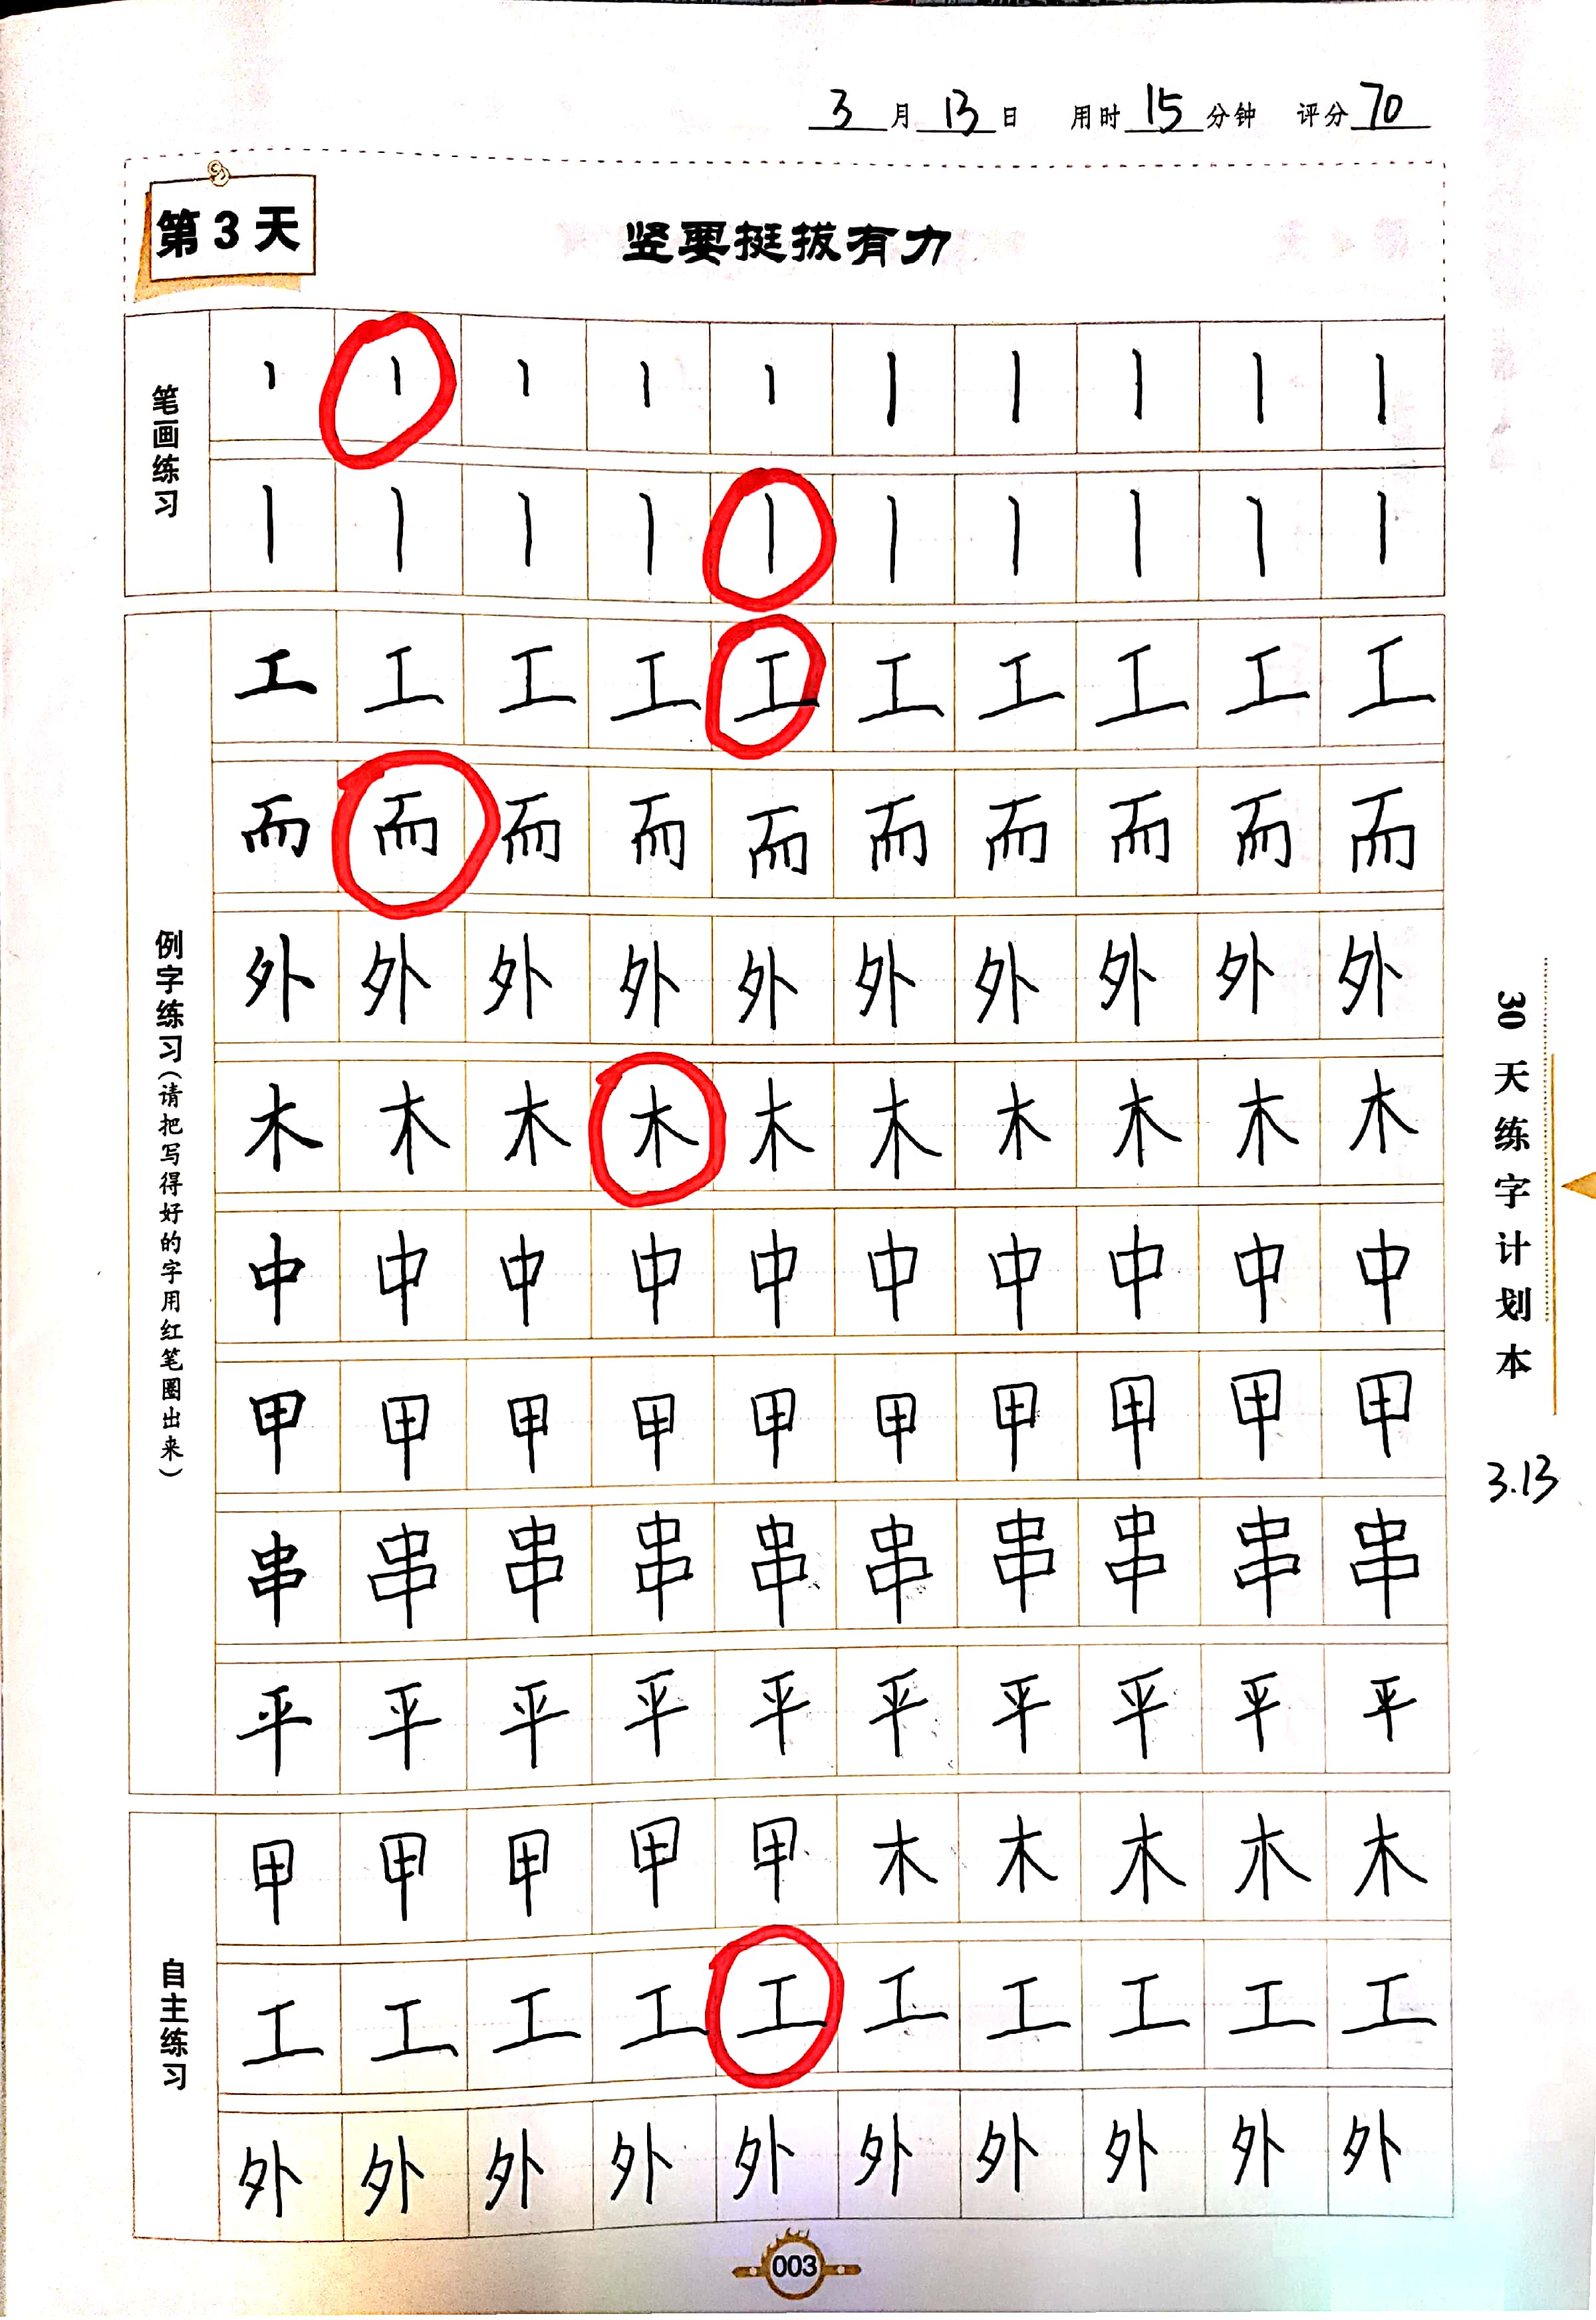 3月13日 用时15分钟 评分70
第3天
竖要挺拔有力
笔画练习
丨 丨 丨 丨 丨 丨 丨 丨 丨 丨
丨 丨 丨 丨 丨 丨 丨 丨 丨 丨
例字练习(请把写得好的字用红笔圈出来)
工 工 工 工 工 工 工 工 工 工
而 而 而 而 而 而 而 而 而 而
外 外 外 外 外 外 外 外 外 外
木 木 木 木 木 木 木 木 木 木
中 中 中 中 中 中 中 中 中 中
甲 甲 甲 甲 甲 甲 甲 甲 甲 甲
串 串 串 串 串 串 串 串 串 串
平 平 平 平 平 平 平 平 平 平
自主练习
甲 甲 甲 甲 甲 木 木 木 木 木
工 工 工 工 工 工 工 工 工 工
外 外 外 外 外 外 外 外 外 外
30天练字计划本
3.13
003